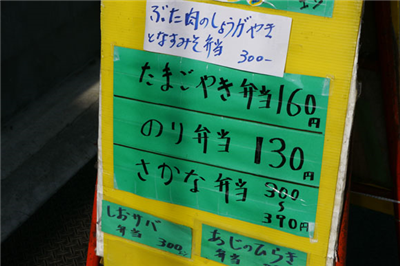 ぶた肉のしょうがやき
となすみそ弁当 300-
たまごやき弁当160円
のり弁当 130円
さかな弁当 300
〜
390円
しおサバ
弁当 300
あじのひらき
弁当